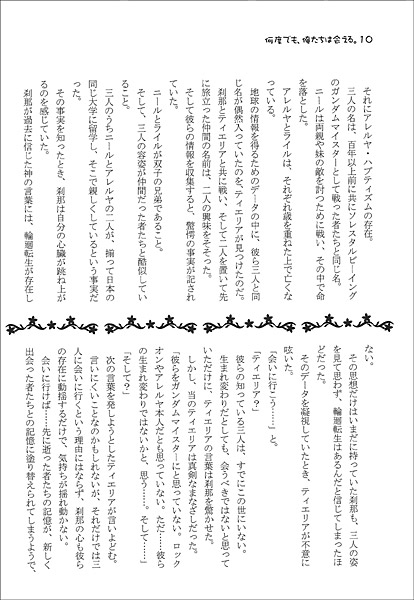 何度でも、俺たちは会える。10
それにアレルヤ・ハプティズムの存在。
三人の名は、百年以上前に共にソレスタルビーイング
のガンダムマイスターとして戦った者たちと同じ名。
ニールは両親や妹の敵を討つために戦い、その中で命
を落とした。
アレルヤとライルは、それぞれ歳を重ねた上で亡くな
っている。
地球の情報を得るためのデータの中に、彼ら三人と同
じ名が偶然入っていたのを、ティエリアが見つけたのだ。
刹那とティエリアと共に戦い、そして二人を置いて先
に旅立った仲間の名前は、二人の興味をそそった。
そして彼らの情報を収集すると、驚愕の事実が記され
ていた。
ニールとライルが双子の兄弟であること。
そして、三人の容姿が仲間だった者たちと酷似してい
ること。
三人のうちニールとアレルヤの二人が、揃って日本の
同じ大学に留学し、そこで親しくしているという事実だ
った。
その事実を知ったとき、刹那は自分の心臓が跳ね上が
るのを感じていた。
刹那が過去に信じた神の言葉には、輪廻転生が存在し
ない。
その思想だけはいまだに持っていた刹那も、三人の姿
を見て思わず、輪廻転生はあるんだと信じてしまったほ
どだった。
そのデータを凝視していたとき、ティエリアが不意に
呟いた。
「会いに行こう……」と。
「ティエリア?」
彼らの知っている三人は、すでにこの世にいない。
生まれ変わりだとしても、会うべきではないと思って
いただけに、ティエリアの言葉は刹那を驚かせた。
しかし、当のティエリアは真剣なまなざしだった。
「彼らをガンダムマイスターにと思っていない。ロック
オンやアレルヤ本人だとも思っていない。ただ……彼ら
の生まれ変わりではないかと、思う……。そして……」
「そして?」
次の言葉を発しようとしたティエリアが言いよどむ。
言いにくいことなのかもしれないが、それだけでは三
人に会いに行くという理由にはならず、刹那の心も彼ら
の存在に動揺するだけで、気持ちが揺れ動かない。
会いに行けば……先に逝った者たちの記憶が、新しく
出会った者たちとの記憶に塗り替えられてしまうようで、